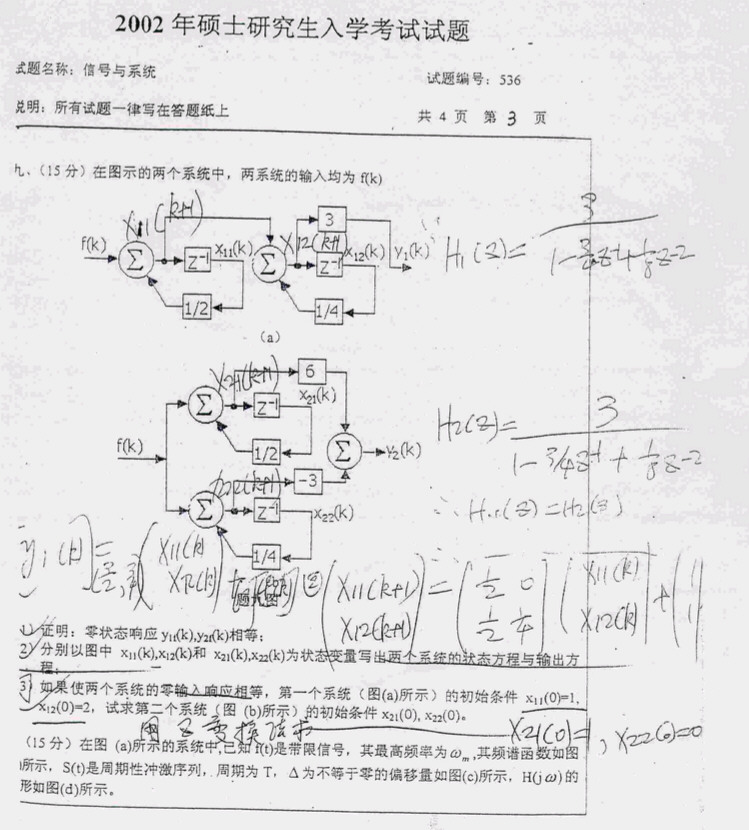 2002 年硕士研究生入学考试试题
试题名称：信号与系统
试题编号：536
说明：所有试题一律写在答题纸上
共 4 页 第 3 页
九、（15 分）在图示的两个系统中，两系统的输入均为 f(k)
X11(k+1)
3
f(k) Σ Z⁻¹ x₁₁(k) Σ X12(k+1) Z⁻¹ x₁₂(k) y₁(k)
H₁(z)= 3
1/2 1/4
(a)
X21(k+1) 6
x₂₁(k)
Σ Z⁻¹
1/2
f(k) Σ y₂(k)
H₂(z)= 3
1-3/4z⁻¹+1/8z⁻²
-3
Σ Z⁻¹ x₂₂(k)
1/4
H₁(z)=H₂(z)
y₁(k)= X11(k)
X12(k)
② X11(k+1) = 1/2 0 X11(k) + 1
X12(k+1) 1/2 1/4 X12(k) 1
1) 证明：零状态响应 y₁f(k),y₂f(k)相等；
2) 分别以图中 x₁₁(k),x₁₂(k)和 x₂₁(k),x₂₂(k)为状态变量写出两个系统的状态方程与输出方
程；
3) 如果使两个系统的零输入响应相等，第一个系统（图(a)所示）的初始条件 x₁₁(0)=1,
x₁₂(0)=2，试求第二个系统（图 (b)所示）的初始条件 x₂₁(0), x₂₂(0)。
用 Z 变换法求
X21(0)=1, X22(0)=0
（15 分）在图 (a)所示的系统中,已知 f(t)是带限信号，其最高频率为 ωₘ,其频谱函数如图
)所示，S(t)是周期性冲激序列，周期为 T，Δ为不等于零的偏移量如图(c)所示，H(jω)的
形如图(d)所示。